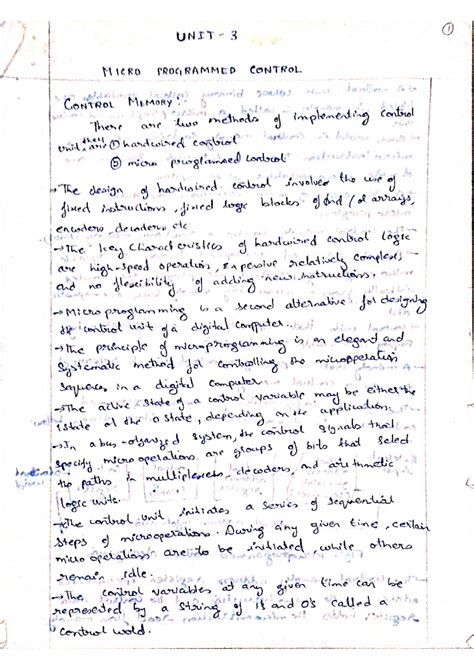 ①
UNIT - 3
MICRO PROGRAMMED CONTROL
CONTROL MEMORY:-
There are two methods of implementing control
unit. they are ① hardwired control
② micro programmed control
→The design of hardwired control involves the use of
fixed instructions, fixed logic blocks of and/or arrays,
encoders, decoders etc
→The key characteristics of hardwired control logic
are high-speed operation, Expensive relatively complex
and no flexibility of adding new instructions.
→Microprogramming is a second alternative for designing
control unit of a digital computer..
→The principle of microprogramming is an elegant and
Systematic method for controlling the microoperation
Sequences in a digital computer
→The active state of a control variable may be either the
1state or the 0 state, depending on the application.
→In a bus-organized System, the control Signals that
specify microoperations are groups of bits that select
the paths in multiplexers, decoders, and arithmetic
logic units.
→The control unit initiates a series of sequential
steps of microoperations. During any given time, certain
micro operations are to be initiated, while others
remain idle.
→The control variables at any given time can be
represented by a String of 1s and 0's called a
Control word.